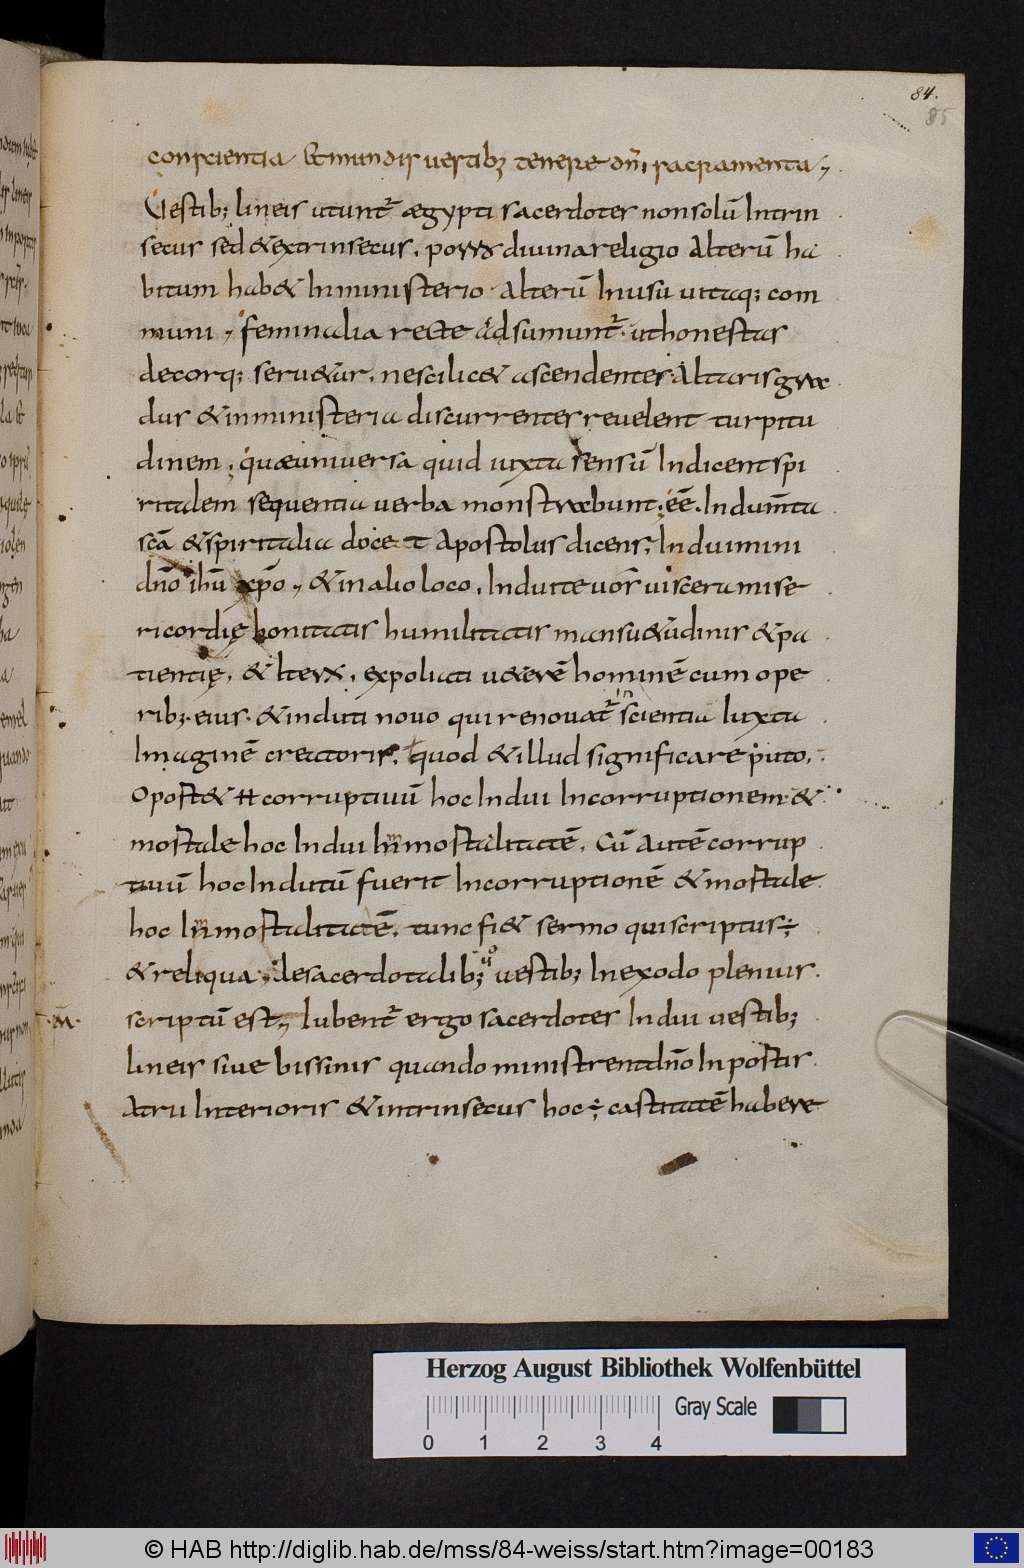 84.
85
conscientia & mundis vestib; tenere dn̄i sacramenta
Vestib; lineis utunt̃ ægypti sacerdotes nonsolū Intrin
secus sed & extrinsecus. porro divina religio Alterū ha
bitum hab& Inministerio. alterū Inusu vitaq; com
muni, feminalia recte adsumunt̃. ut honestas
decorq; serv&ur. nescilic& ascendentes Altaris gra
dus & inministeria discurrentes revelent turpitu
dinem. quæ universa quid iuxta sensū Indicent spi
ritalem sequentia verba monstrabunt; eē. Indum̄ta
scā & spiritalia doc& Apostolus dicens; Induimini
dn̄o ihū xp̄o, & in alio loco. Induite vos viscera mise
ricordię bonitatis humilitatis mansu&udinis & pa
tientię. & Iterū. expoliati v&erē hominē cum ope
rib; eius. & induti novo qui renovat̃ in scientia Iuxta
Imaginē creatoris. quod & illud significare puto.
Oport& corruptivū hoc Indui Incorruptionem. &
mortale hoc Indui Inmortalitatē. Cū Autē corrup
tivū hoc Indutū fuerit Incorruptionē & mortale
hoc Inmortalitatē. tunc fi& sermo qui scriptus ÷
& reliqua. de sacerdotalib; vestib; In exodo plenius
scriptū est, Iubent̃ ergo sacerdotes Indui vestib;
lineis sive bissinis quando ministrent dn̄o In portis
Atrii Interioris & intrinsecus hoc ÷ castitatē habere
Herzog August Bibliothek Wolfenbüttel
Gray Scale
0 1 2 3 4
© HAB http://diglib.hab.de/mss/84-weiss/start.htm?image=00183